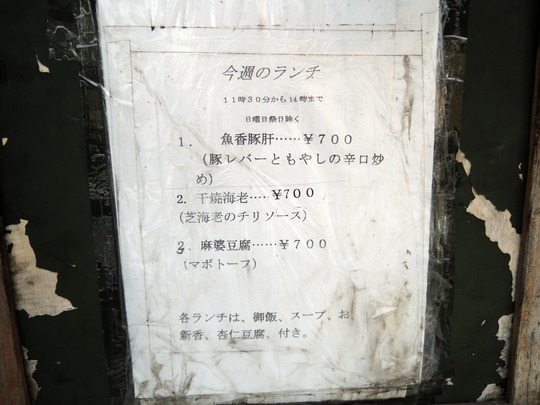 今週のランチ
11時30分から14時まで
日曜日祭日除く
1. 魚香豚肝……￥700
(豚レバーともやしの辛口炒
め)
2. 干焼海老‥‥￥700
(芝海老のチリソース)
3. 麻婆豆腐……￥700
(マボトーフ)
各ランチは、御飯、スープ、お
新香、杏仁豆腐、付き。